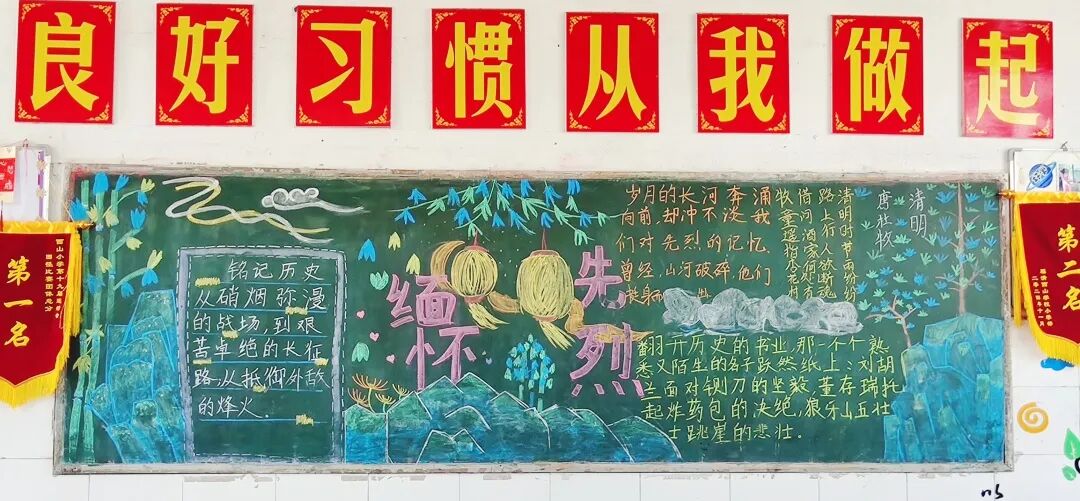 良好习惯从我做起
第一名
铭记历史
从硝烟弥漫
的战场,到艰
苦卓绝的长征
路,从抵御外敌
的烽火.
缅怀
先烈
岁月的长河奔涌
向前,却冲不淡我
们对先烈的记忆.
曾经,山河破碎,他们
挺身而
清明
唐 杜牧
清明时节雨纷纷
路上行人欲断魂
借问酒家何处有
牧童遥指杏花村
翻开历史的书业,那一个个熟
悉又陌生的名子跃然纸上:刘胡
兰面对铡刀的坚毅,董存瑞托
起炸药包的决绝,狼牙山五壮
士跳崖的悲壮.
第二名